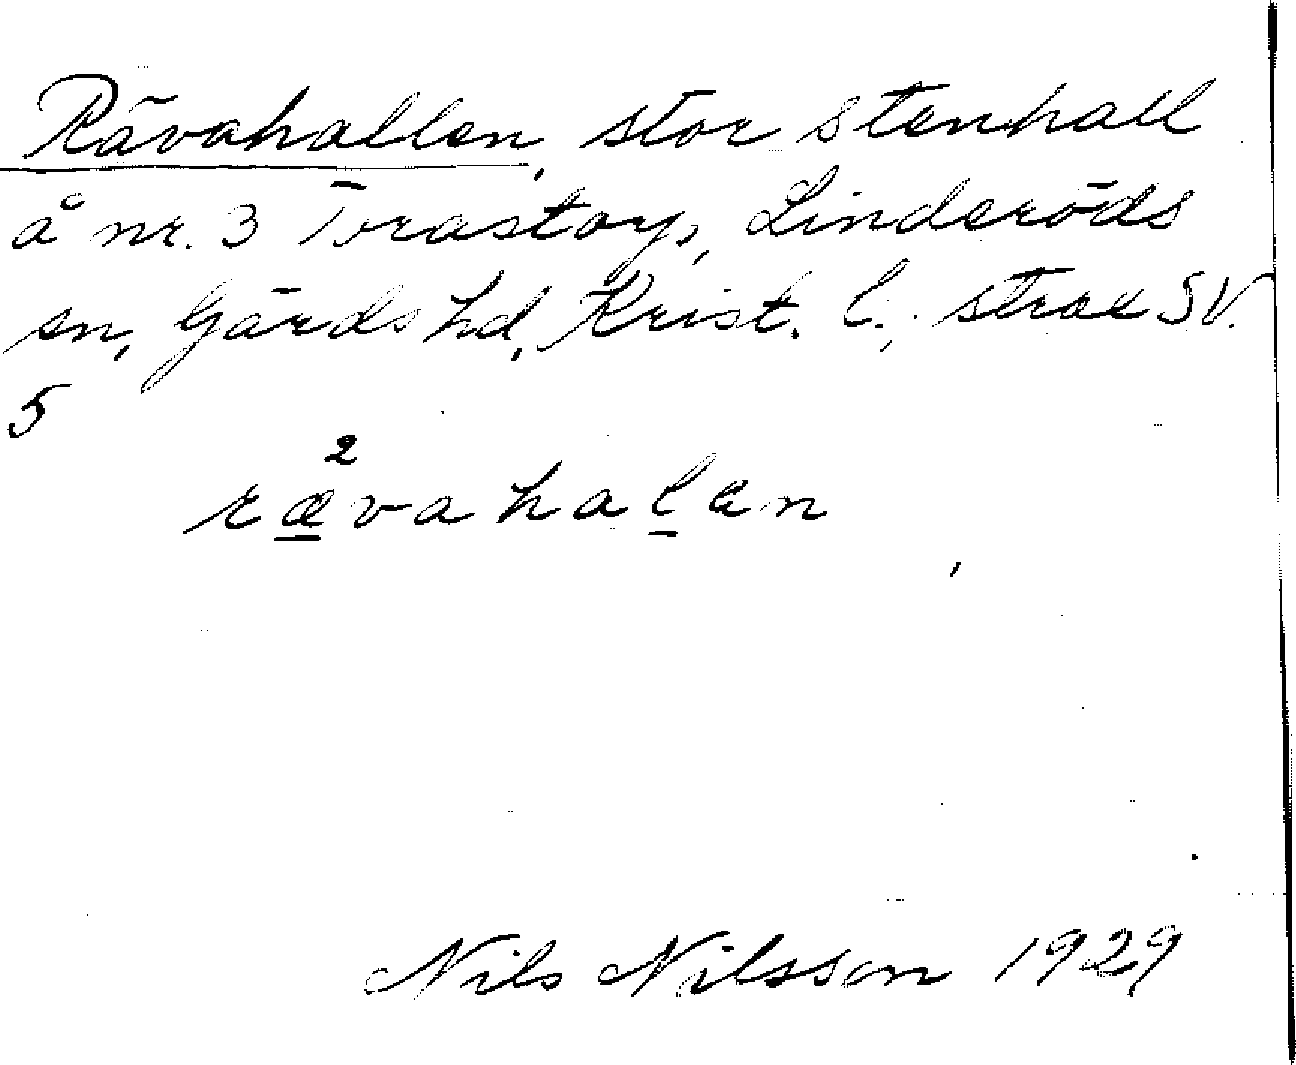 Rävahallen, stor stenhall
å nr. 3 Torastorp, Linderöds
sn, Gärds hd, Krist. l., strax SV.
5
ræ²vahalen
Nils Nilsson 1929